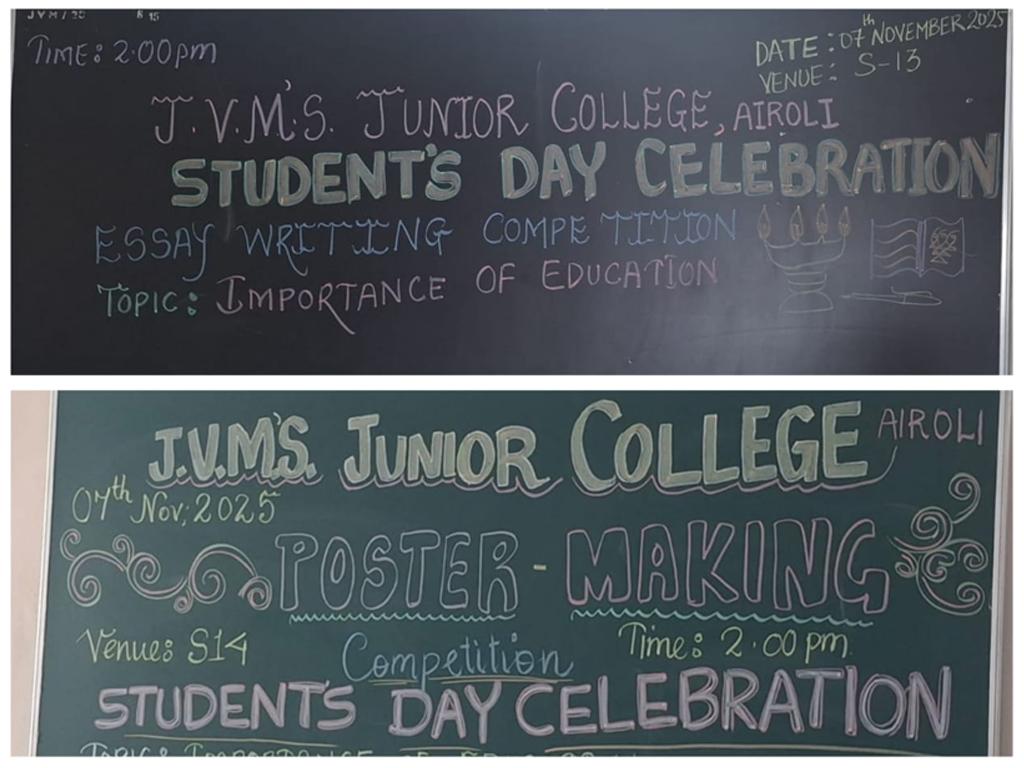 TIME: 2:00pm
DATE: 07th NOVEMBER 2025
VENUE: S-13
J.V.M'S. JUNIOR COLLEGE, AIROLI
STUDENT'S DAY CELEBRATION
ESSAY WRITING COMPETITION
TOPIC: IMPORTANCE OF EDUCATION
J.V.M'S. JUNIOR COLLEGE AIROLI
07th Nov, 2025
POSTER-MAKING
Venue: S14
Competition
Time: 2.00 pm
STUDENT'S DAY CELEBRATION